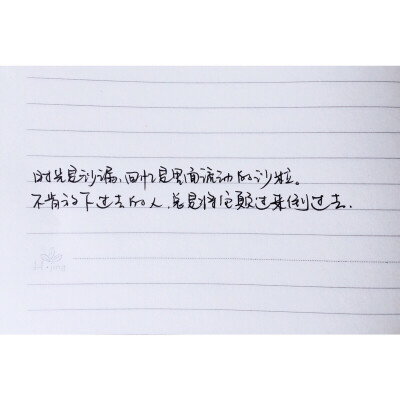 时光是沙漏,回忆是里面流动的沙粒。
不肯放下过去的人,总是将它颠过来倒过去.